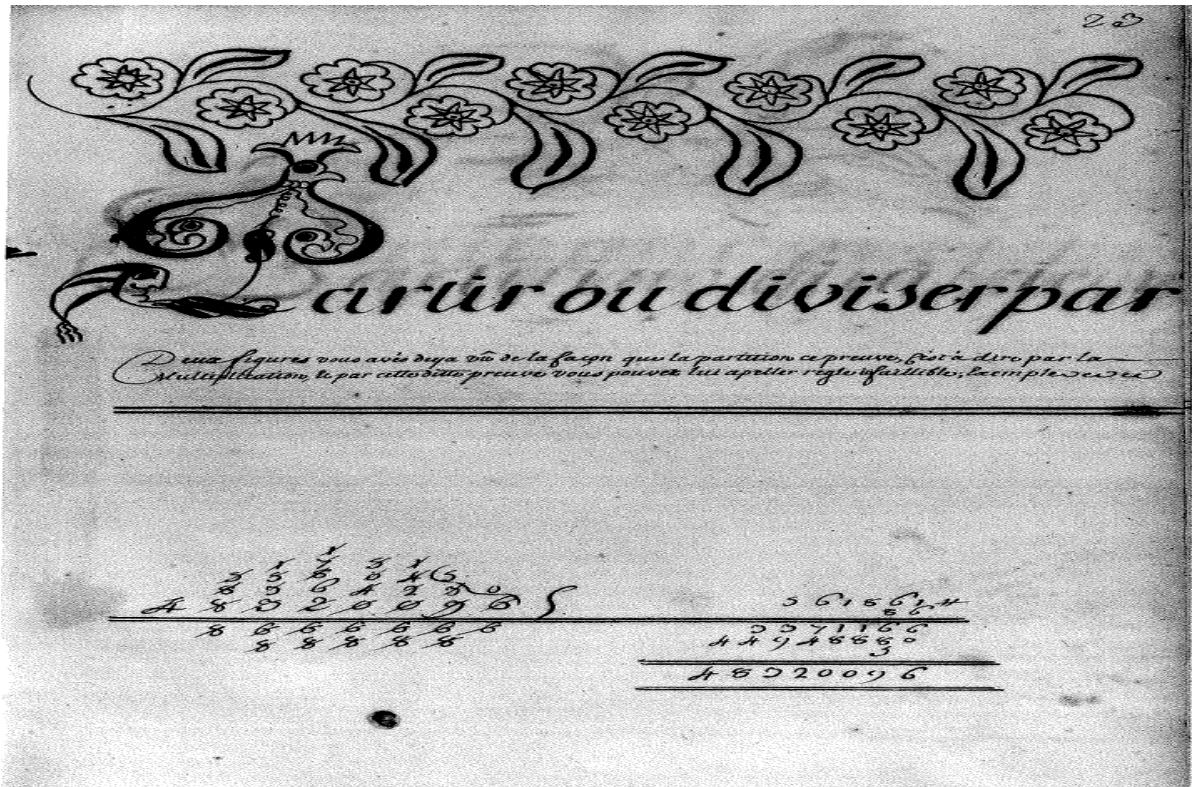 23
Partir ou diviser par
Deux figures vous avés deja vû de la façon que la partition ce preuve, c'est à dire par la
Multiplication, & par cette ditte preuve vous pouvez lui apeller regle infaillible, Exemple
4 8 3 2 0 0 9 6
8 6 6 6 6 6 6
8 8 8 8 8
5 6 1 8 6 1
8 6
3 3 7 1 1 6 6
4 4 9 4 8 8 8 0
5
4 8 3 2 0 0 9 6